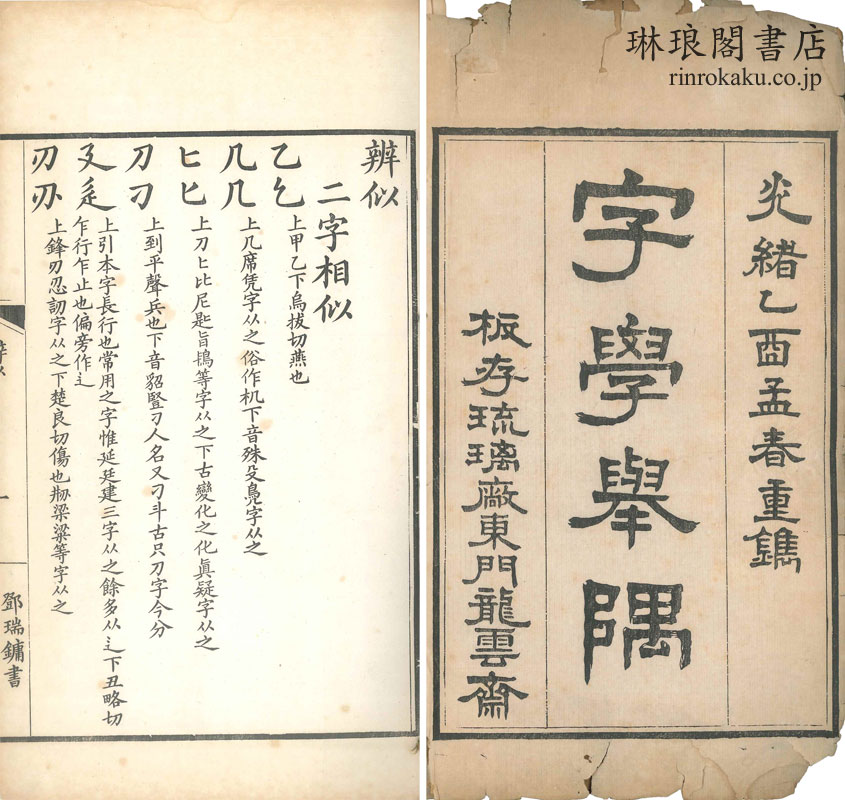 琳琅閣書店
rinrokaku.co.jp
光緒乙酉孟春重鐫
字學舉隅
板存琉璃廠東門龍雲齋
辨似
二字相似
乙𠃉 上甲乙下烏拔切燕也
几𠘧 上几席凭字从之俗作机下音殊殳鳧字从之
匕𠤎 上刀匕比尼匙旨鴇等字从之下古變化之化眞疑字从之
刀刁 上到平聲兵也下音貂豎刁人名又刁斗古只刀字今分
廴辵 上引本字長行也常用之字惟延廷建三字从之餘多从辶下丑略切
乍行乍止也偏旁作辶
刃刅 上鋒刃忍訒字从之下楚良切傷也刱梁粱等字从之
一
鄧瑞鏞書